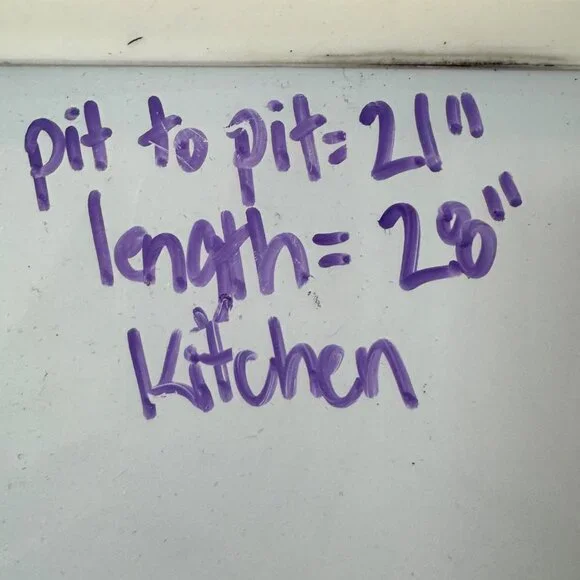 pit to pit= 21"
length= 28"
Kitchen